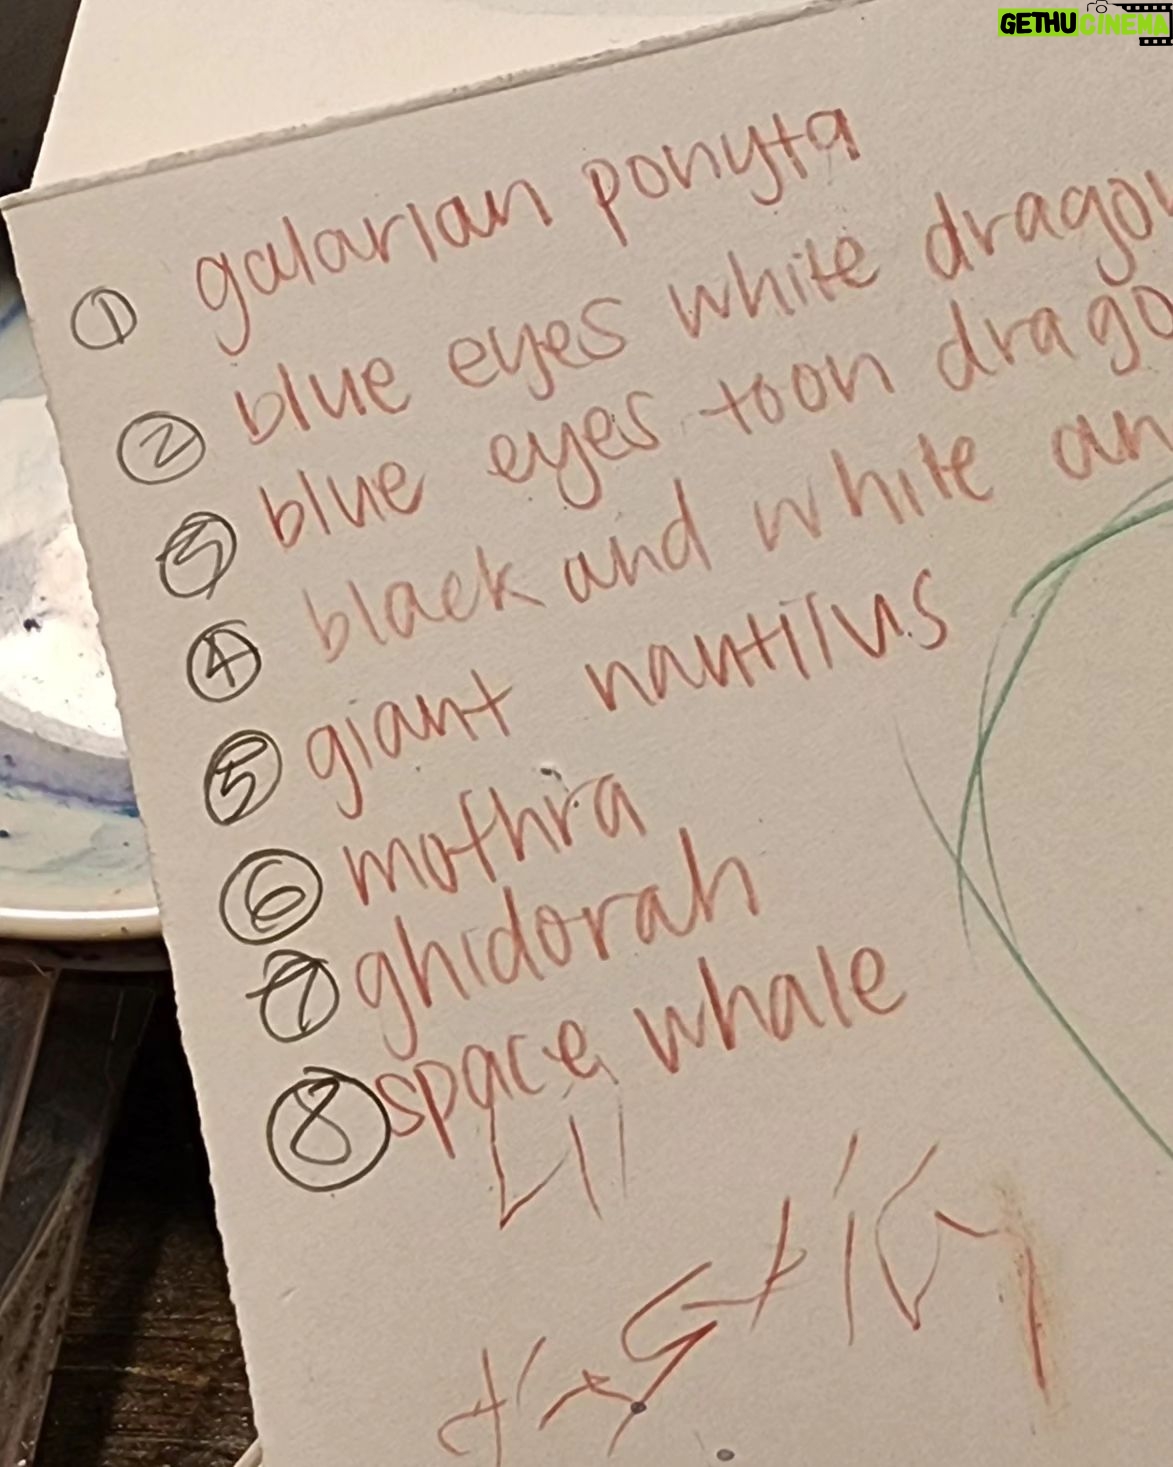 GETHUCINEMA
① galarian ponyta
② blue eyes white dragon
③ blue eyes toon drago
④ black and white an
⑤ giant nautilus
⑥ mothra
⑦ ghidorah
⑧ space whale